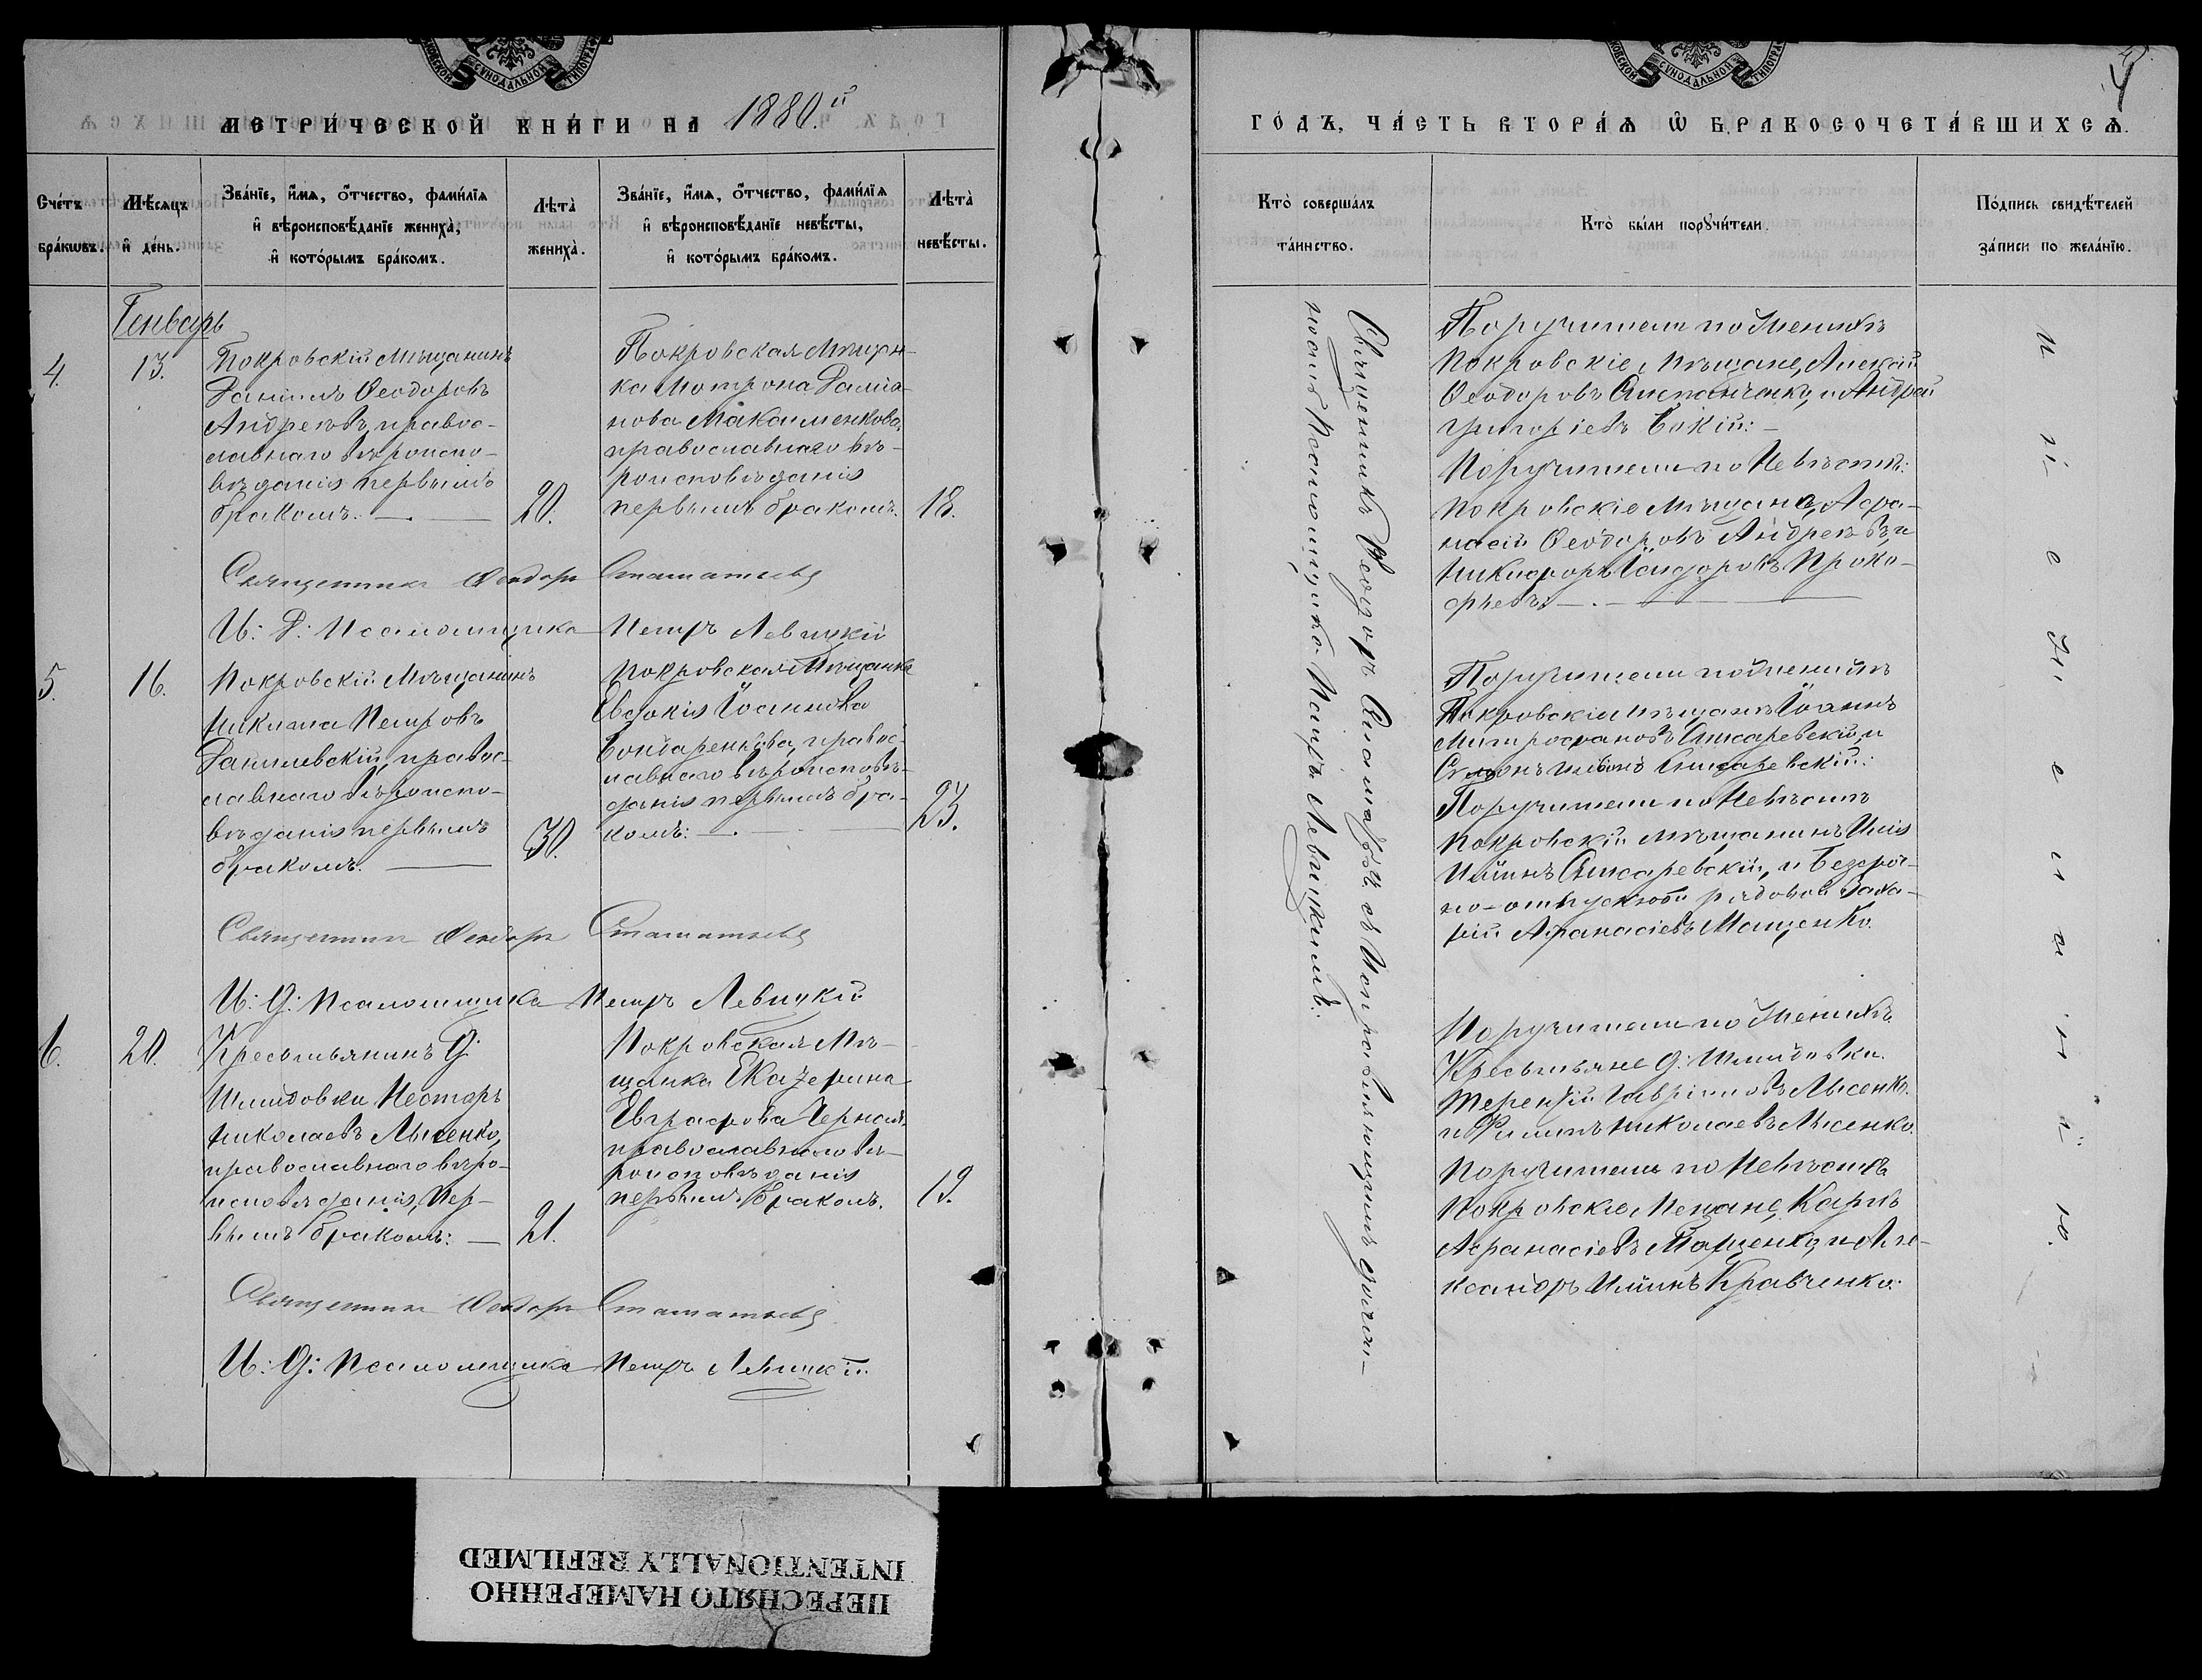 МОСКОВСКОЙ СѴНОДАЛЬНОЙ ТИПОГРАФ
МЕТРИ́ЧЕСКОЙ КНИ́ГИ НА 1880.й
Сче́тъ бра́кωвъ.
Мѣ́сяцъ и҆ де́нь.
Зва́нїе, и҆́мѧ, о҆́тчество, фами́лїѧ
и҆ вѣроисповѣ́данїе жениха̀,
и҆ кото́рымъ бра́комъ.
Лѣта̀ жениха̀.
Зва́нїе, и҆́мѧ, о҆́тчество, фами́лїѧ
и҆ вѣроисповѣ́данїе невѣ́сты,
и҆ кото́рымъ бра́комъ.
Лѣта̀ невѣ́сты.
Генварь
4. 13.
Покровскій Мѣщанинъ
Даніилъ Ѳеодоровъ
Андреевъ, правос-
лавнаго вѣроиспо-
вѣданія первымъ
бракомъ. —
20.
Покровская Мѣщан-
ка Мотрона Даміа-
нова Макаименкова,
православнаго вѣ-
роисповѣданія
первымъ бракомъ.
18.
Священникъ Ѳеодоръ Стаматьевъ
И: Д: Псаломщика Петръ Левицкій
5. 16.
Покровскій Мѣщанинъ
Никита Петровъ
Данилевскій, правос-
лавнаго вѣроиспо-
вѣданія первымъ
бракомъ. —
30.
Покровская Мѣщанка
Евдокія Іоаннова
Бондаренкова, правос-
лавнаго вѣроисповѣ-
данія первымъ бра-
комъ: —
23.
Священникъ Ѳеодоръ Стаматьевъ
И: Д: Псаломщика Петръ Левицкій
6. 20.
Крестьянинъ Д:
Шмидовки Несторъ
Николаевъ Лысенко,
православнаго вѣро-
исповѣданія, пер-
вымъ бракомъ: —
21.
Покровская Мѣ-
щанка Екатерина
Евграфова Черная,
православнаго вѣ-
роисповѣданія
первымъ бракомъ.
19.
Священникъ Ѳеодоръ Стаматьевъ
И: Д: Псаломщика Петръ Левицкій
МОСКОВСКОЙ СѴНОДАЛЬНОЙ ТИПОГРАФ
4
ГО́ДЪ, ЧА́СТЬ ВТОРА́Ѧ Ѡ҆ БРАКОСОЧЕТА́ВШИХСѦ.
Кто̀ соверша́лъ
та́инство.
Кто̀ бы́ли порꙋчи́тели.
По́дпись свидѣ́телей
за́писи по жела́нїю.
Священникъ Ѳеодоръ Стаматьевъ съ Исправляющимъ должн-
ность Псаломщика Петръ Левицкимъ:
Поручители по Женихѣ
Покровскіе Мѣщане, Алексій
Ѳеодоровъ и Андрей
Григоріевъ Бокій: —
Поручители по Невѣстѣ:
Покровскіе Мѣщане, Афа-
насій Ѳеодоровъ Андреевъ, и
Никифоръ Прoко-
фьевъ: —
Поручители по Женихѣ
Покровскіи мѣщане Іоаннъ
Митрофановъ Слюсаревскій, и
Слюсаревскій:
Поручители по Невѣстѣ
Покровскій мѣщанинъ Илія
Ильинъ Слюсаревскій, и Безсроч-
но-отпускной рядовой Заха-
рій Афанасіевъ Мащенко.
Поручители по Женихѣ
Крестьяне Д: Шмидовки.
Терентій Гавріиловъ Лысенко.
и Филипъ Николаевъ Лысенко.
Поручители по Невѣстѣ
Покровскіе Мещане, Карпъ
Афанасіевъ Мащенко, и Але-
ксандръ Ильинъ Кравченко:
ПЕРЕСНЯТО НАМЕРЕННО
INTENTIONALLY REFILMED